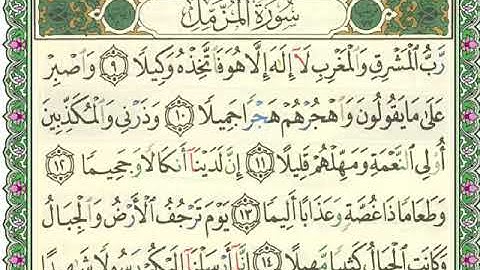 سُورَةُ الْمُزَّمِّلِ
رَّبُّ الْمَشْرِقِ وَالْمَغْرِبِ لَا إِلَٰهَ إِلَّا هُوَ فَاتَّخِذْهُ وَكِيلًا ٩ وَاصْبِرْ
عَلَىٰ مَا يَقُولُونَ وَاهْجُرْهُمْ هَجْرًا جَمِيلًا ١٠ وَذَرْنِي وَالْمُكَذِّبِينَ
أُولِي النَّعْمَةِ وَمَهِّلْهُمْ قَلِيلًا ١١ إِنَّ لَدَيْنَا أَنكَالًا وَجَحِيمًا ١٢
وَطَعَامًا ذَا غُصَّةٍ وَعَذَابًا أَلِيمًا ١٣ يَوْمَ تَرْجُفُ الْأَرْضُ وَالْجِبَالُ
وَكَانَتِ الْجِبَالُ كَثِيبًا مَّهِيلًا ١٤ إِنَّا أَرْسَلْنَا إِلَيْكُمْ رَسُولًا شَاهِدًا